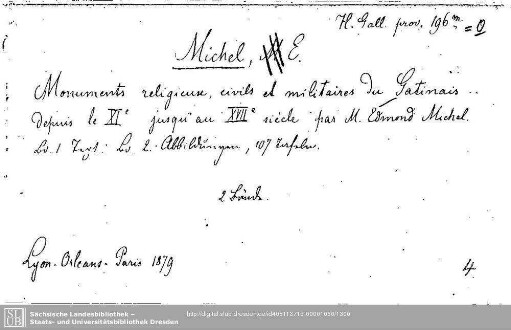 H. Gall. prov. 196 m = 0
Michel, E.
Monuments religieux, civils et militaires du Gatinais..
depuis le XIe jusqu'au XVIIe siècle par M. Edmond Michel.
Bd. 1 Text. Bd. 2. Abbildungen, 107 Tafeln.
2 Bände.
Lyon-Orleans-Paris 1879
4
SLUB
Sächsische Landesbibliothek –
Staats- und Universitätsbibliothek Dresden